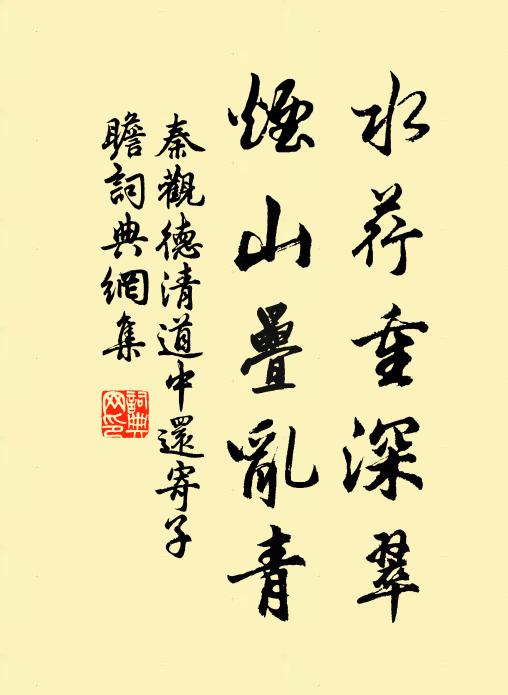 水荇重深翠
煙山疊亂青
秦觀德清道中還寄子
瞻詞典網集
詞典
网印